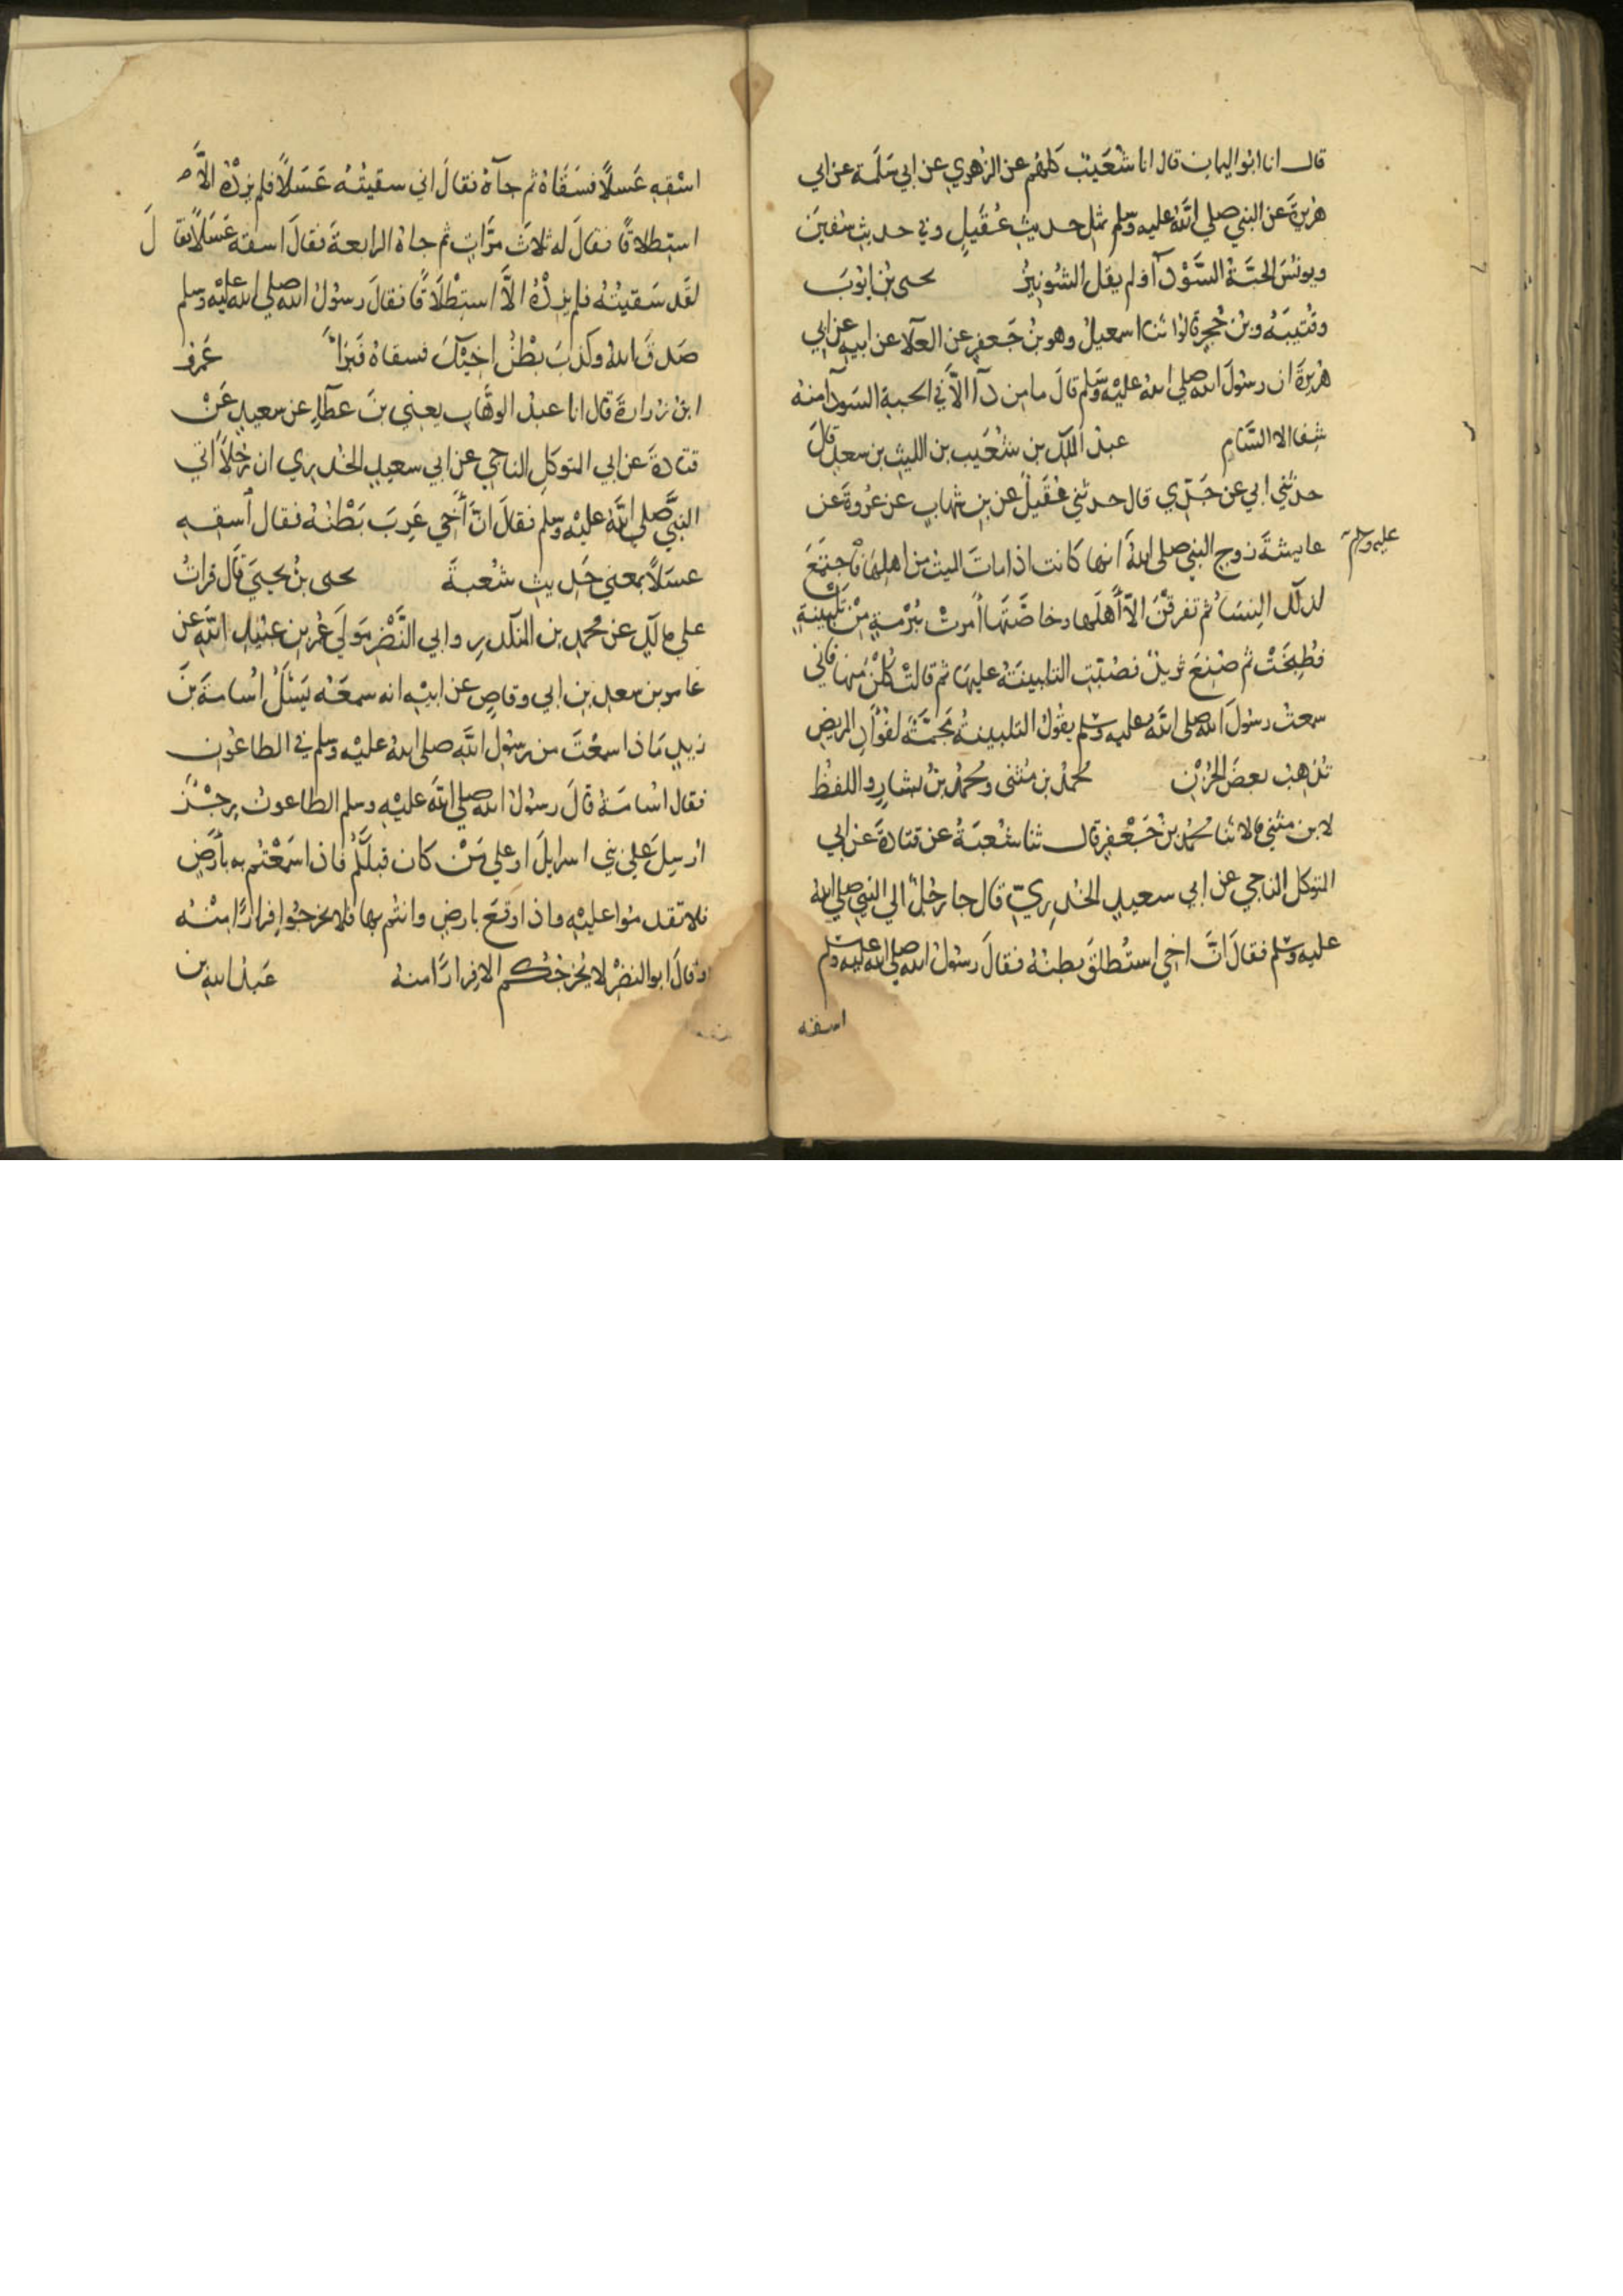 قال انا ابوا اليمان قال انا شُعَيْبٌ كلهُم عن الزهوي عن ابي سَلَمة عن ابي
هُريرةَ عن النبي صلي اللّهُ عليه وسلم بمثل حديث عُقَيلٍ وفي حديث سُفينَ
ويونُسَ الحبّةُ السَّوْدآ ولم يقل الشُونيزُ يحيى بنُ ايوبَ
وقُتيبَةُ وبنُ حُجرٍ قالوا ثنا اسمعيلُ وهو بنُ جَعفرٍ عن العلآ عن ابيه عن ابي
هُريرةَ ان رسولَ الله صلي اللهُ عليْهِ وسَلم قالَ ما من دآ الاَّ في الحبة السودآ منهُ
شِفا الا السَّام عبدُ الملك بن شُعَيب بن الليث بن سعدٍ قالَ
حدثني ابي عن جَدّي قال حدثني عُقَيلٌ عن بن شهاب عن عُروةَ عن
عايشةَ زوج النبي صلى اللهُ عليه وسلم انها كانت اذا ماتَ الميتُ من اهلِهَا فاجتَمَعَ
لذلك النِسَاُ ثم تفرقْنَ الاّ أهلَها وخاصَّتَها أمرتْ بُرْمةٍ مِنْ تَلْبينةٍ
فطُبِخَتْ ثم صُنِعَ ثريدٌ فصُبَّتِ التلبينَةُ عليهَا ثم قالتْ كُلْنَ منها فاني
سمعتُ رسولَ الله صلى اللّهُ عليه وسلم يقُولُ التلبينةُ مَجَمَّةٌ لفُؤَادِ المريضِ
تُذهِبُ بعضَ الحُزْنِ محمدُ بن مُثنى ومحمدُ بنُ بشارٍ واللفظُ
لابن مثني قالا ثنا محمدُ بنُ جَعْفرٍ قال ثنا شعبَةُ عن قتادةَ عن ابي
المتوكل الناجي عن ابي سعيدٍ الخُدرِيِّ قال جا رجُلٌ الي النبي صلي الله
عليه وسلم فقالَ انَّ اخِي استُطلقَ بطنُهُ فقالَ رسُولُ الله صلي الله عليه وسلم
اسقه
اسْقِهِ عَسلاً فسَقَاهُ ثم جآهُ فقالَ اني سقيتُهُ عَسَلاً فلم يزدْهُ الاَّ
استطلاقًا فقالَ له ثلاثَ مرَّاتٍ ثم جاهُ الرابعةَ فقالَ اسقه عَسَلاً فقالَ
لقَد سَقيتُهُ فلم يزدْهُ الاَّ استِطْلاَقًا فقالَ رسوُلُ الله صلي الله عليْهِ وسلم
صَدقَ اللهُ وكذبَ بطْنُ اخيْكَ فسقاهُ فَبَرَا عَمرُو
ابن زرارةَ قال انا عبدُ الوهَّاب يعني بنَ عطآءٍ عن سعيدٍ عَنْ
قتادةَ عن ابي المتوكلِ الناجي عن ابي سعيدٍ الخُدري ان رجُلاً اتي
النبيَّ صلي اللّهُ عليْه وسلم فقالَ انَّ أخي عَرِبَ بَطْنُهُ فقال أسقِهِ
عسَلاً بمعني حَديث شُعبةَ يحيى بنُ يحييَ قال قراتُ
علي مالكٍ عن محمدِ بن المنكدرِ وابي النَّضْرِ مَولَي عُمرَ بن عبيد اللّهِ عن
عامر بن سعد بن ابي وقاصٍ عن ابيْهِ انه سمعَهُ يَسْئلُ اُسَامةَ بنَ
زيدٍ مَاذا سمعْتَ من رسُولِ اللّهِ صلى اللهُ عليْه وسلم في الطاعُونِ
فقال اسُامَةُ قالَ رسوُلُ الله صلي اللهُ عليْهِ وسلم الطاعونُ رِجْزٌ
ارسِلَ عَلي بني اسرايلَ او علي مَنْ كان قبلكُمْ فاذا سَمعْتُم به بأرضٍ
فلا تقدموُا عليْهِ واذا وقعَ بارضٍ وانتُم بها فلا تخرجُوا فرارًا منْهُ
وقالَ ابو النضْرِ لا يُخرِجُكم الا فِرارًا منهُ عَبدُ الله بن